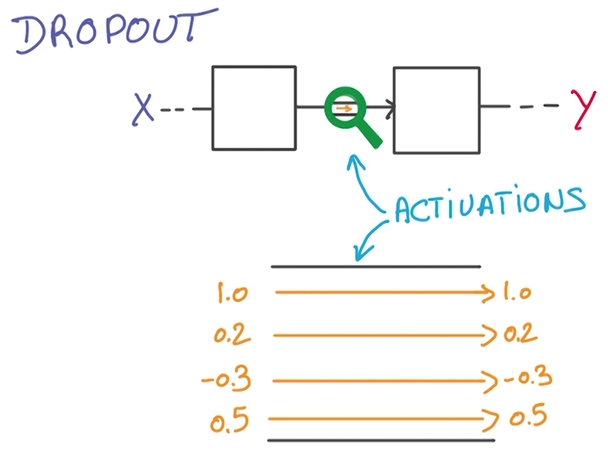 DROPOUT
X Y
ACTIVATIONS
1.0 1.0
0.2 0.2
-0.3 -0.3
0.5 0.5